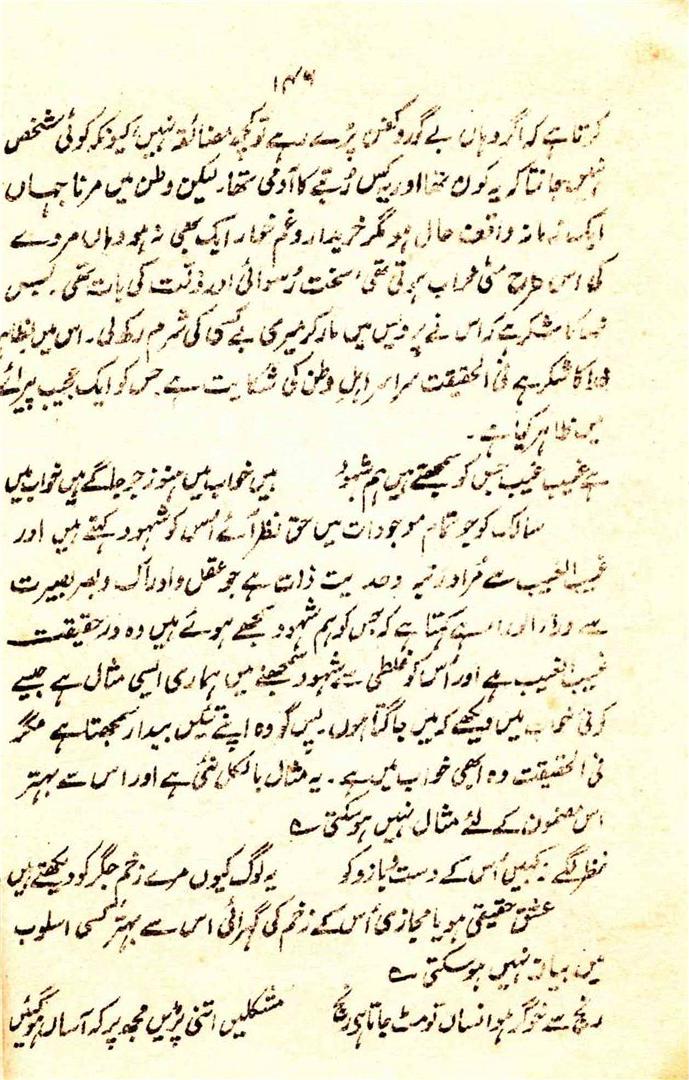 ۱۴۶
کرتا ہے کہ اگر وہاں بے گور و کفن پڑے رہے تو کچھ مضائقہ نہیں کیونکہ کوئی شخص
نہیں جانتا کہ یہ کون تھا اور کس رتبے کا آدمی تھا۔ لیکن وطن میں مرنا جہاں
ایک زمانہ واقف حال ہو مگر خریدار و غم خوار ایک بھی نہ ہو وہاں مردے
کی اس طرح مٹی خراب ہوتی تھی سخت رسوائی اور ذلت کی بات تھی۔ پس
خدا کا شکر ہے کہ اس نے پردیس میں مار کر میری بے کسی کی شرم رکھ لی۔ اس میں بظاہر
خدا کا شکر ہے فی الحقیقت سراسر اہل وطن کی شکایت ہے جس کو ایک عجیب پیرائے
میں ظاہر کیا ہے۔
ہے غیب غیب جس کو سمجھتے ہیں ہم شہود ہیں خواب میں ہنوز جو جاگے ہیں خواب میں
سالک کو جو تمام موجودات میں حق نظر آئے اُس کو شہود کہتے ہیں اور
غیب الغیب سے مراد مرتبہ وحدیت ذات ہے جو عقل و ادراک و بصر و بصیرت
سے وراء الوراء ہے کہتا ہے کہ جس کو ہم شہود سمجھے ہوئے ہیں وہ درحقیقت
غیب الغیب ہے اور اُس کو غلطی سے شہود سمجھنے میں ہماری ایسی مثال ہے جیسے
کوئی خواب میں دیکھے کہ میں جاگتا ہوں۔ پس گو وہ اپنے تئیں بیدار سمجھتا ہے مگر
فی الحقیقت وہ ابھی خواب میں ہے۔ یہ مثال بالکل نئی ہے اور اس سے بہتر
اس مضمون کے لئے مثال نہیں ہو سکتی ؎
نظر لگے نہ کہیں اُس کے دست و بازو کو یہ لوگ کیوں مرے زخم جگر کو دیکھتے ہیں
عشق حقیقی ہو یا مجازی اُس کے زخم کی گہرائی اس سے بہتر کسی اسلوب
میں بیان نہیں ہو سکتی ؎
رنج سے خوگر ہوا انساں تو مٹ جاتا ہی رنج مشکلیں اتنی پڑیں مجھ پر کہ آساں ہو گئیں